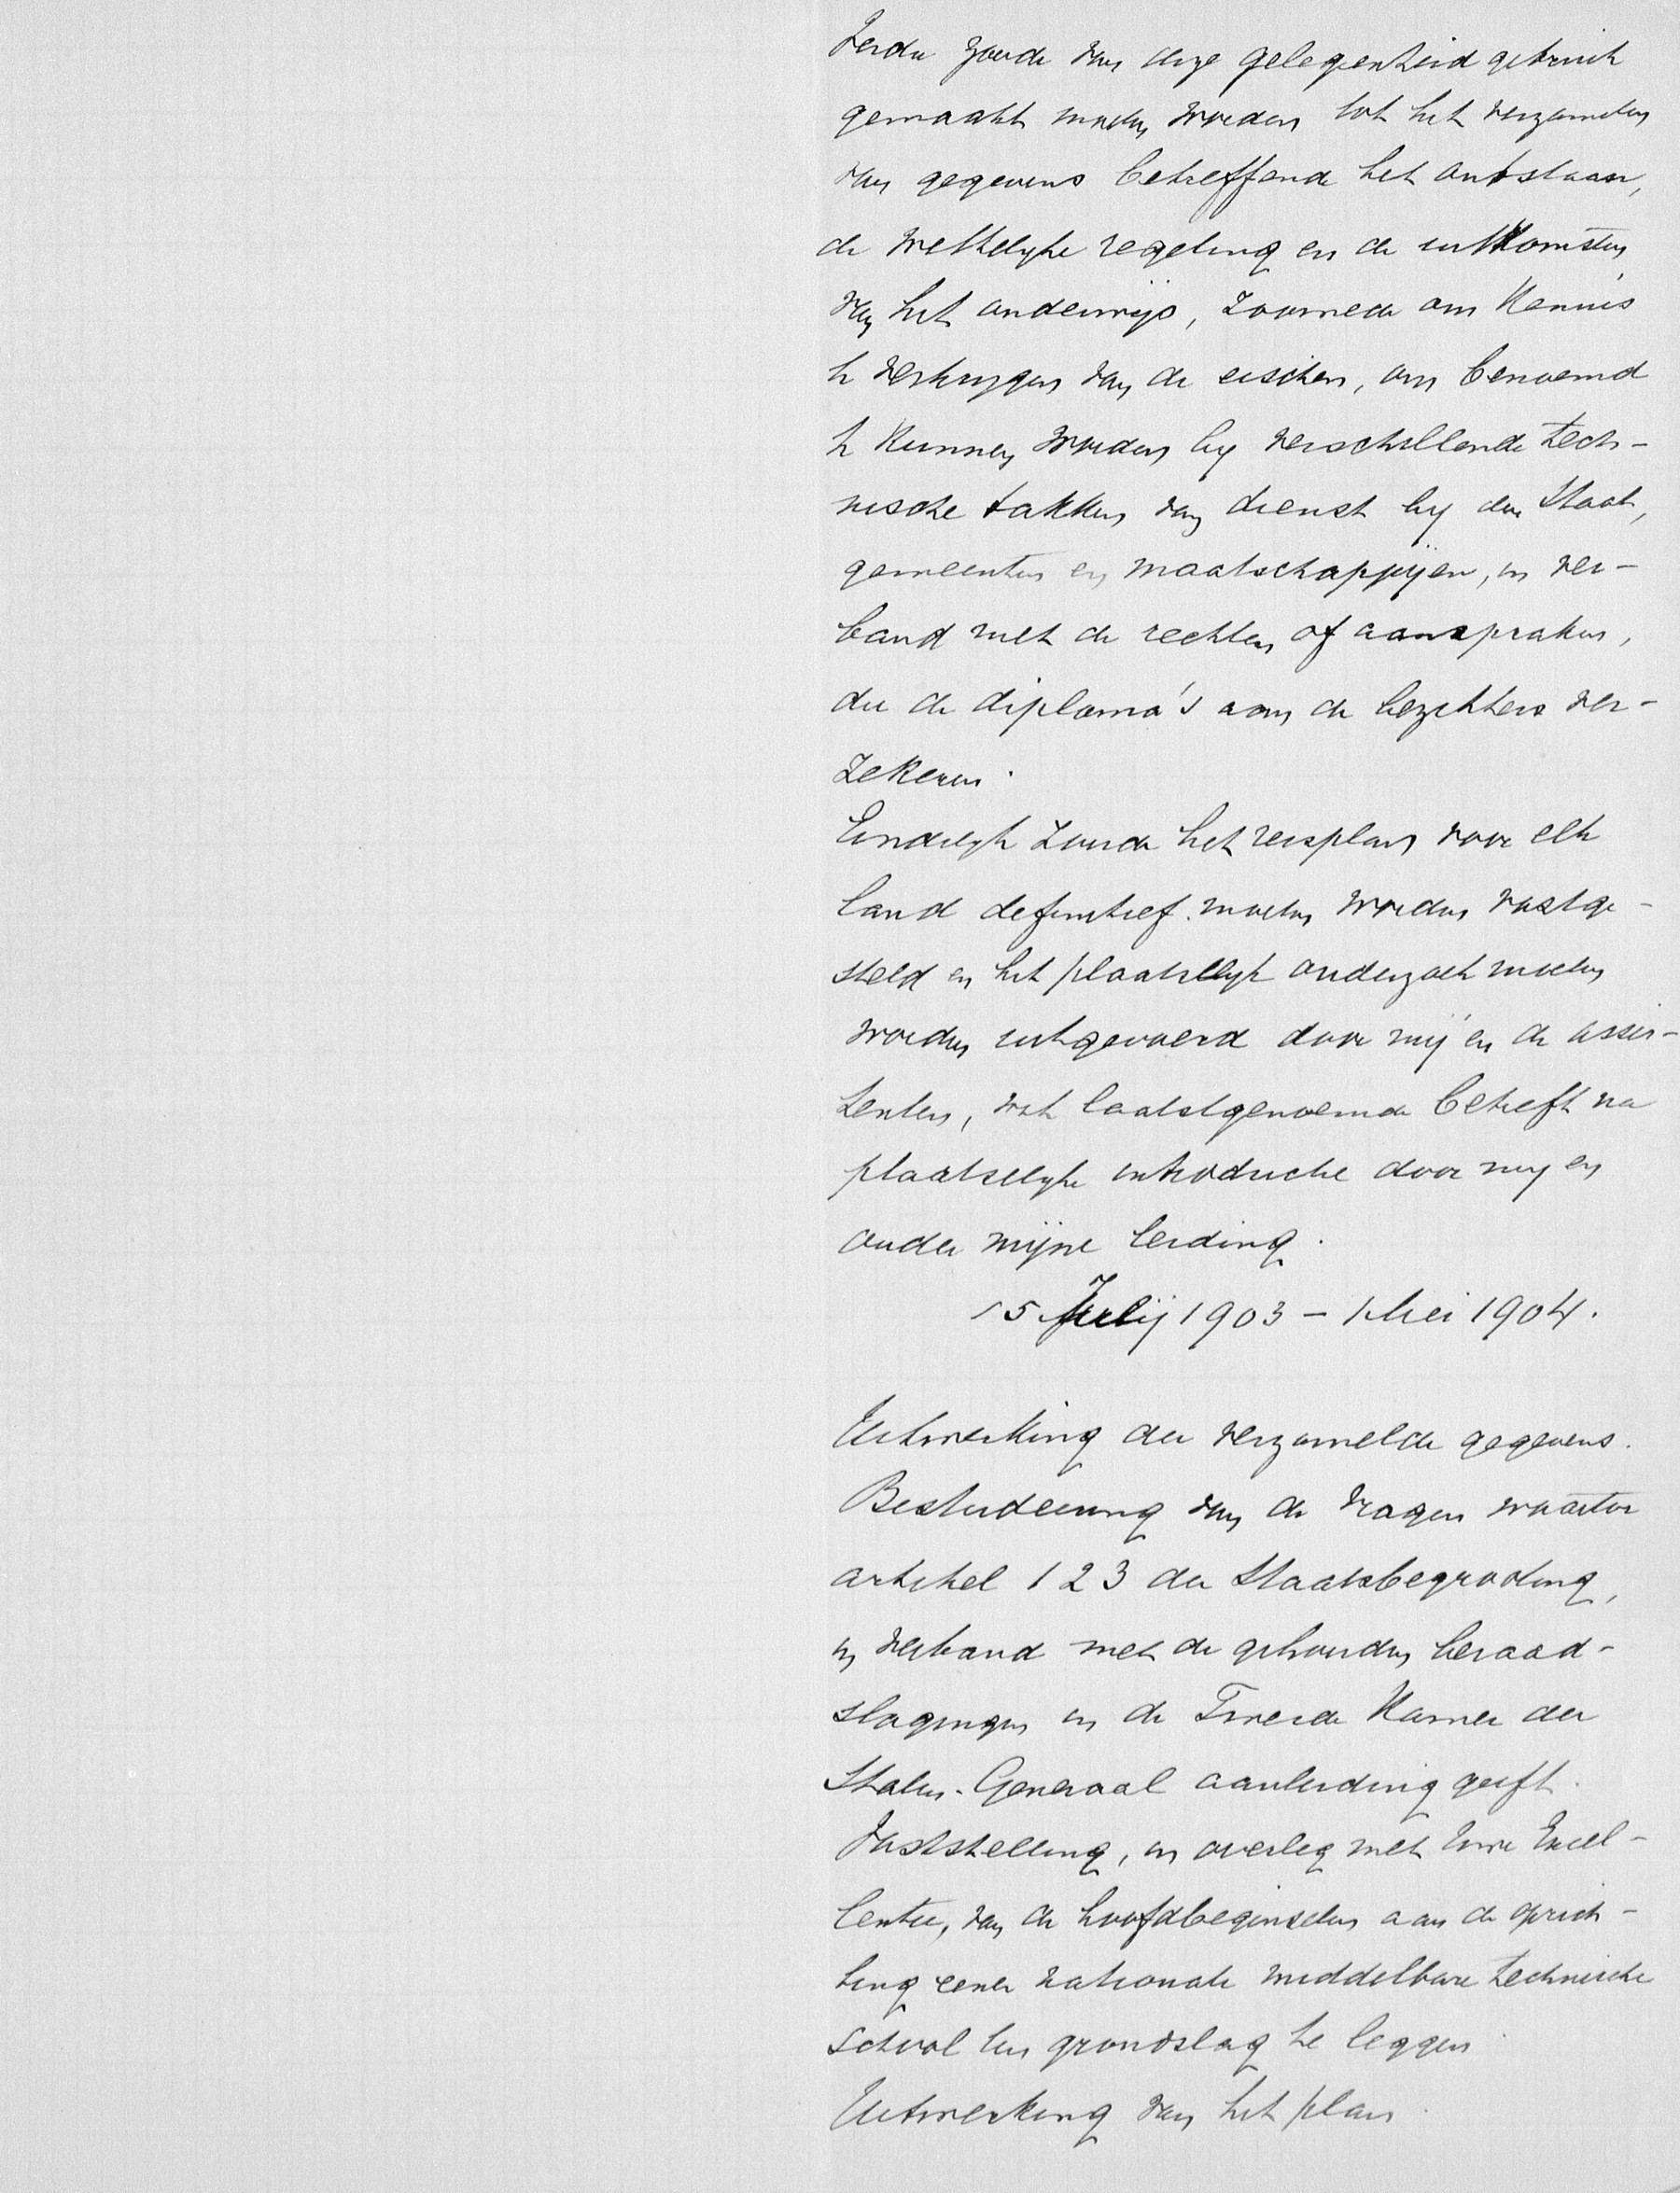 Verder zoude van deze gelegenheid gebruik
gemaakt moeten worden tot het verzamelen
van gegevens betreffende het ontstaan,
de wettelyke regeling en de uitkomsten
van het onderwijs, zoomede om kennis
te verkrygen van de eischen, om benoemd
te kunnen worden by verschillende tech-
nische takken van dienst by den Staat,
gemeenten en maatschappijen, in ver-
band met de rechten of aanspraken,
die de diploma's aan de bezitters ver-
zekeren.
Eindelyk zoude het reisplan voor elk
land definitief moeten worden vastge-
steld en het plaatselyk onderzoek moeten
worden uitgevoerd door mij en de assis-
tenten, wat laatstgenoemde betreft na
plaatselyke introductie door my en
onder mijne leiding.
15 Julij 1903 - 1 Mei 1904.
Uitwerking der verzamelde gegevens.
Bestudeering van de vragen waartoe
artikel 123 der Staatsbegrooting,
in verband met de gehouden beraad-
slagingen in de Tweede Kamer der
Staten-Generaal aanleiding geeft.
Vaststelling, in overleg met Uwe Excel-
lentie, van de hoofdbeginselen aan de oprich-
ting eener nationale middelbare technische
school ten grondslag te leggen.
Uitwerking van het plan.